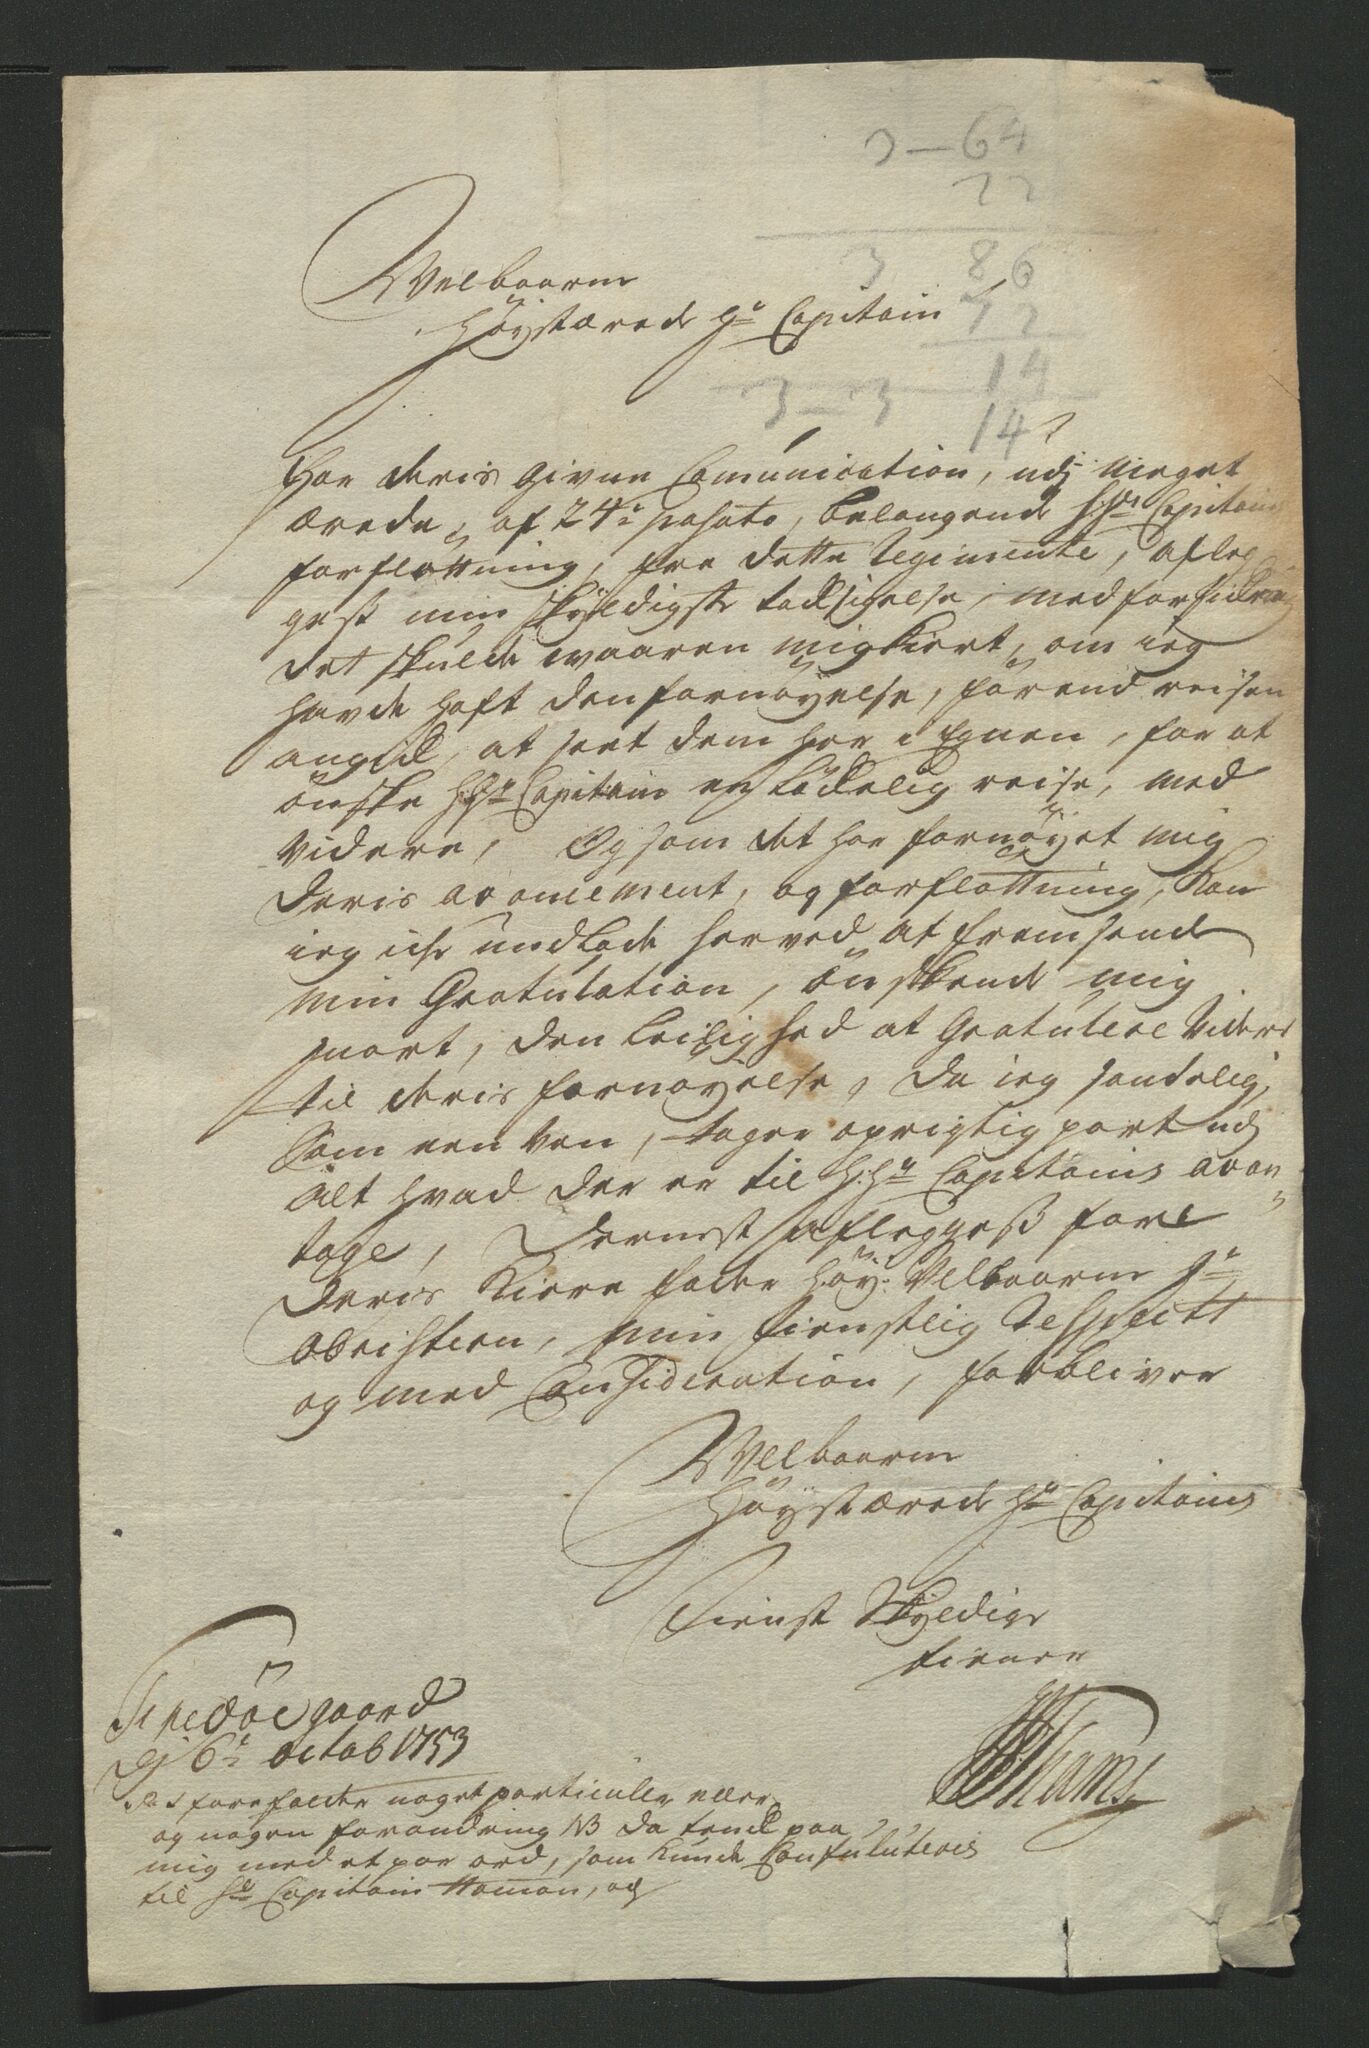 3 — 64
22
3 86
72
3 — 3 — 14
14
Welbaarne
Höystærede Hr Capitain
Har deris givne Comunication, udj meget
ærede, af 24de pasato, belangende H: Hr Capitains
forflöttning, fra dette Regimente, afleg
gest min skyldigste tacksigelse, med forsickring
det skulde waaren mig kiert, om ieg
hafde haft den fornöyelse, förend reisen
angick, at seet dem her i Egnen, for at
önske H: Hr Capitain en löckelig reise, med
videre, Og som det har fornöyet mig
deris avancement, og forflöttning, kan
ieg icke undlade herved at fremsende
min Gratulation, önskende mig
snart, den leilighed at Gratulere videre
til deris fornöyelse, da ieg sandelig,
som een ven, tager oprigtig part udj
alt hvad der er til H: Hr Capitains avan
tage, dernest aflegges for
deris kiere fader Höy: Velbaarne Hr
Obristern, min tienstlig Respectt
og med Consideration, forbliver
Welbaarne
Höystærede Hr Capitains
Tienst skyldige
tiener
Thams
gaard
dj 6te octob 1753
forefalder noget particulier eller
og nogen forandring NB da tenck paa
mig med et par ord, som kunde
til Hr Capitain Haman, og